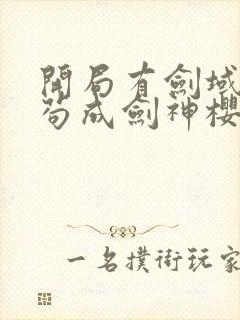 開局有劍域
茍成劍神櫻
一名撲街玩家